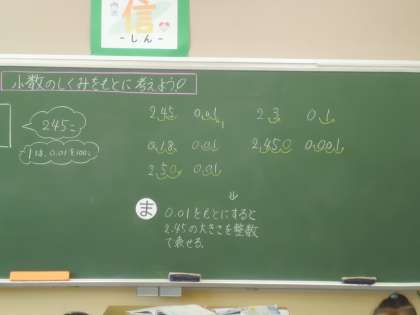 信
-しん-
小数のしくみをもとに考えよう
245こ
1は、0.01を100こ
2.45 0.01 2.3 0.1
0.18 0.01 2.450 0.001
2.50 0.01
⇓
ま 0.01をもとにすると
2.45の大きさを整数
で表せる。